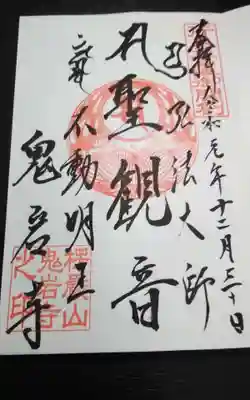 奉拝 令和元年十二月三十日
弘法大師
聖観音
不動明王
鬼岩寺
楞嚴山
鬼岩寺
之印